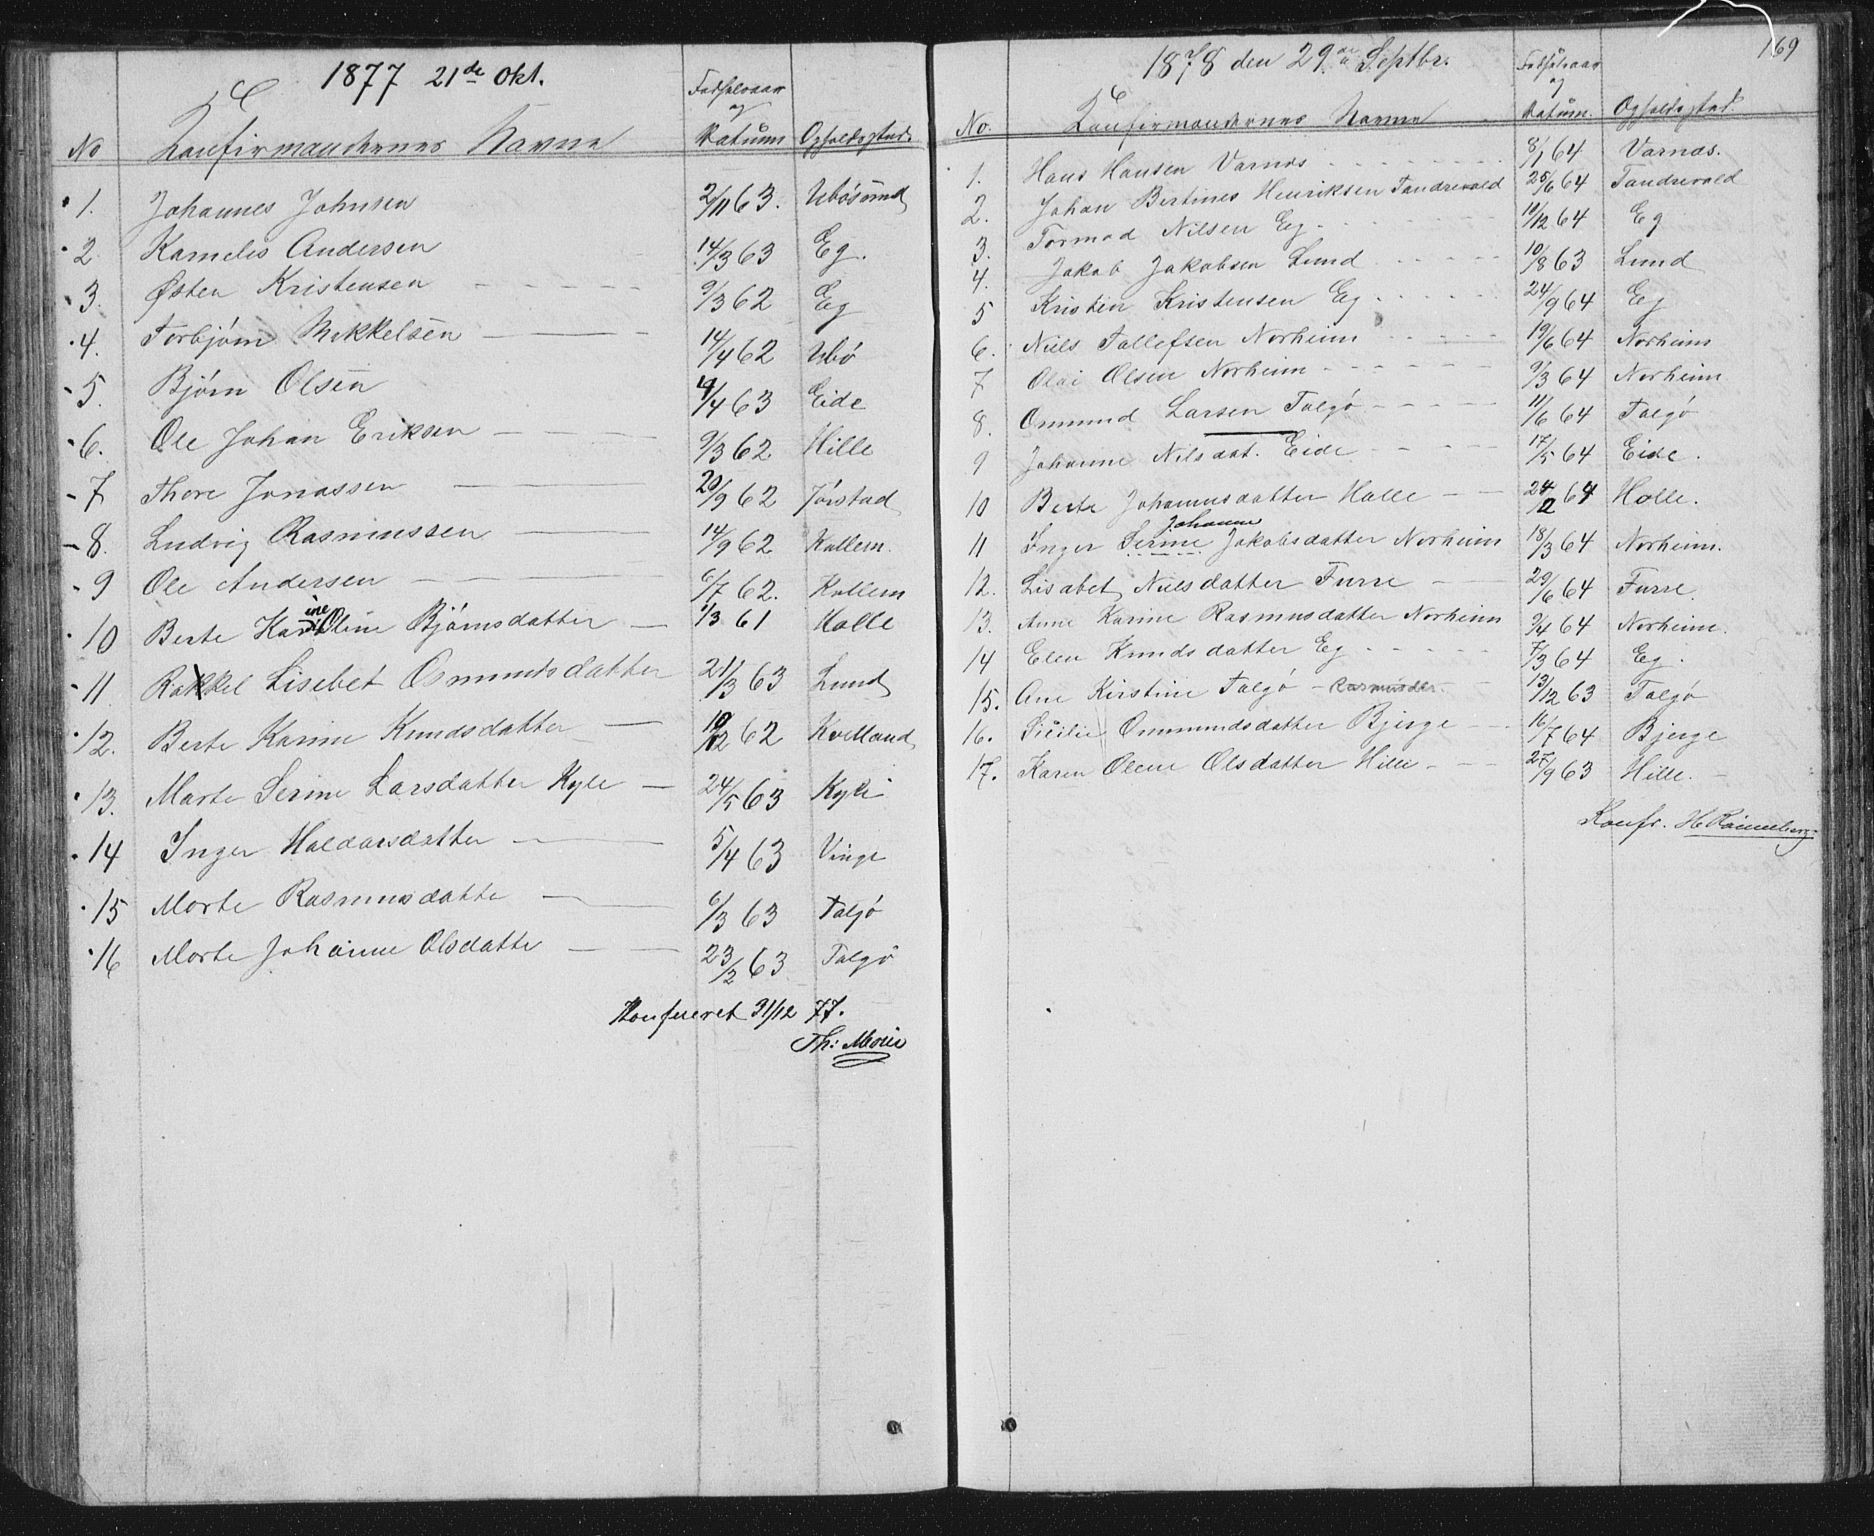 1877 21de Okt.
No Konfirmandernes Navne Fødselsaar og Datum Opholdssted
1. Johannes Johnsen 2/11 63. Ubøsund
2 Kornelis Andersen 14/3 63 Eg.
3. Østen Kristensen 9/3 62 Eg
4. Torbjørn Mikkelsen 14/4 62 Ubø
5. Bjørn Olsen 4/4 63 Eide
6. Ole Johan Eriksen 9/3 62 Hille
7 Thore Jonassen 20/9 62 Jørstad
8. Ludvig Rasmussen 14/9 62 Kollem.
9 Ole Andersen 6/7 62. Kollem
10 Berte Karine Oline Bjørnsdatter 1/3 61 Halle
11. Rakkel Lisebet Osmundsdatter 21/3 63 Lund
12. Berte Karine Knudsdatter 10/12 62 Kvelland
13. Marte Serine Larsdatter Kyle 24/5 63 Kyle
14 Inger Haldorsdatter 5/4 63 Vinge
15 Marte Rasmusdatte 6/3 63 Talgø
16 Marte Johanne Olsdatte 23/2 63 Talgø
Konfereret 31/12 77.
Th:
169
1878 den 29de Septbr.
No. Konfirmandernes Navne Fødselsaar og Datum. Opholdssted.
1. Hans Hansen Varnes 8/1 64 Varnes.
2. Johan Bertines Henriksen Tandrevold 25/6 64 Tandrevold
3. Tormod Nilsen Eg 10/12 64 Eg
4. Jakob Jakobsen Lund 10/8 63 Lund
5 Kristen Kristensen Eg 24/9 64 Eg
6. Niels Tollefsen Norheim 19/6 64 Norheim
7 Olai Olsen Norheim 9/3 64 Norheim
8. Ommund Larsen Talgø 11/6 64 Talgø
9 Johanne Nilsdat. Eide 17/5 64 Eide.
10 Berte Johannesdatter Halle 24/12 64 Halle.
Johanne
11 Inger Serine Jakobsdatter Norheim 18/3 64 Norheim.
12. Lisabet Nielsdatter Furre 29/6 64 Furre.
13. Anne Karine Rasmusdatter Norheim 9/4 64 Norheim.
14 Elen Knudsdatter Eg 7/3 64 Eg.
15. Ane Kirstine Talgø Rasmusdtr. 13/12 63 Talgø
16. Sicilie Ommundsdatter Bjerge 16/7 64 Bjerge
17. Karen Olene Olsdatter Hille 27/9 63 Hille.
Konfr.